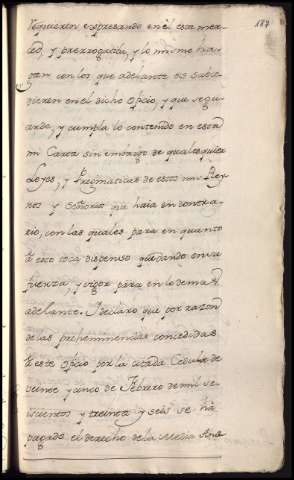 187
requieren expresando en él esta mer-
ced, y prerrogativa, y lo mismo ha-
gan con los que adelante os subce-
dieren en el dicho oficio, y que se guar-
de, y cumpla lo contenido en esta
mi Carta sin embargo de qualesquiera
Leyes, y Pragmaticas de estos mis Rey-
nos y señorios que haia en contra-
rio, con las quales para en quanto
a esto toca dispenso quedando en su
fuerza, y vigor para en lo demas
adelante. I declaro que por razon
de las prehemminencias concedidas
a este oficio por la citada Cedula de
veinte y cinco de Febrero de mil se-
iscientos y treinta y seis se ha
pagado el derecho de la Media Ana